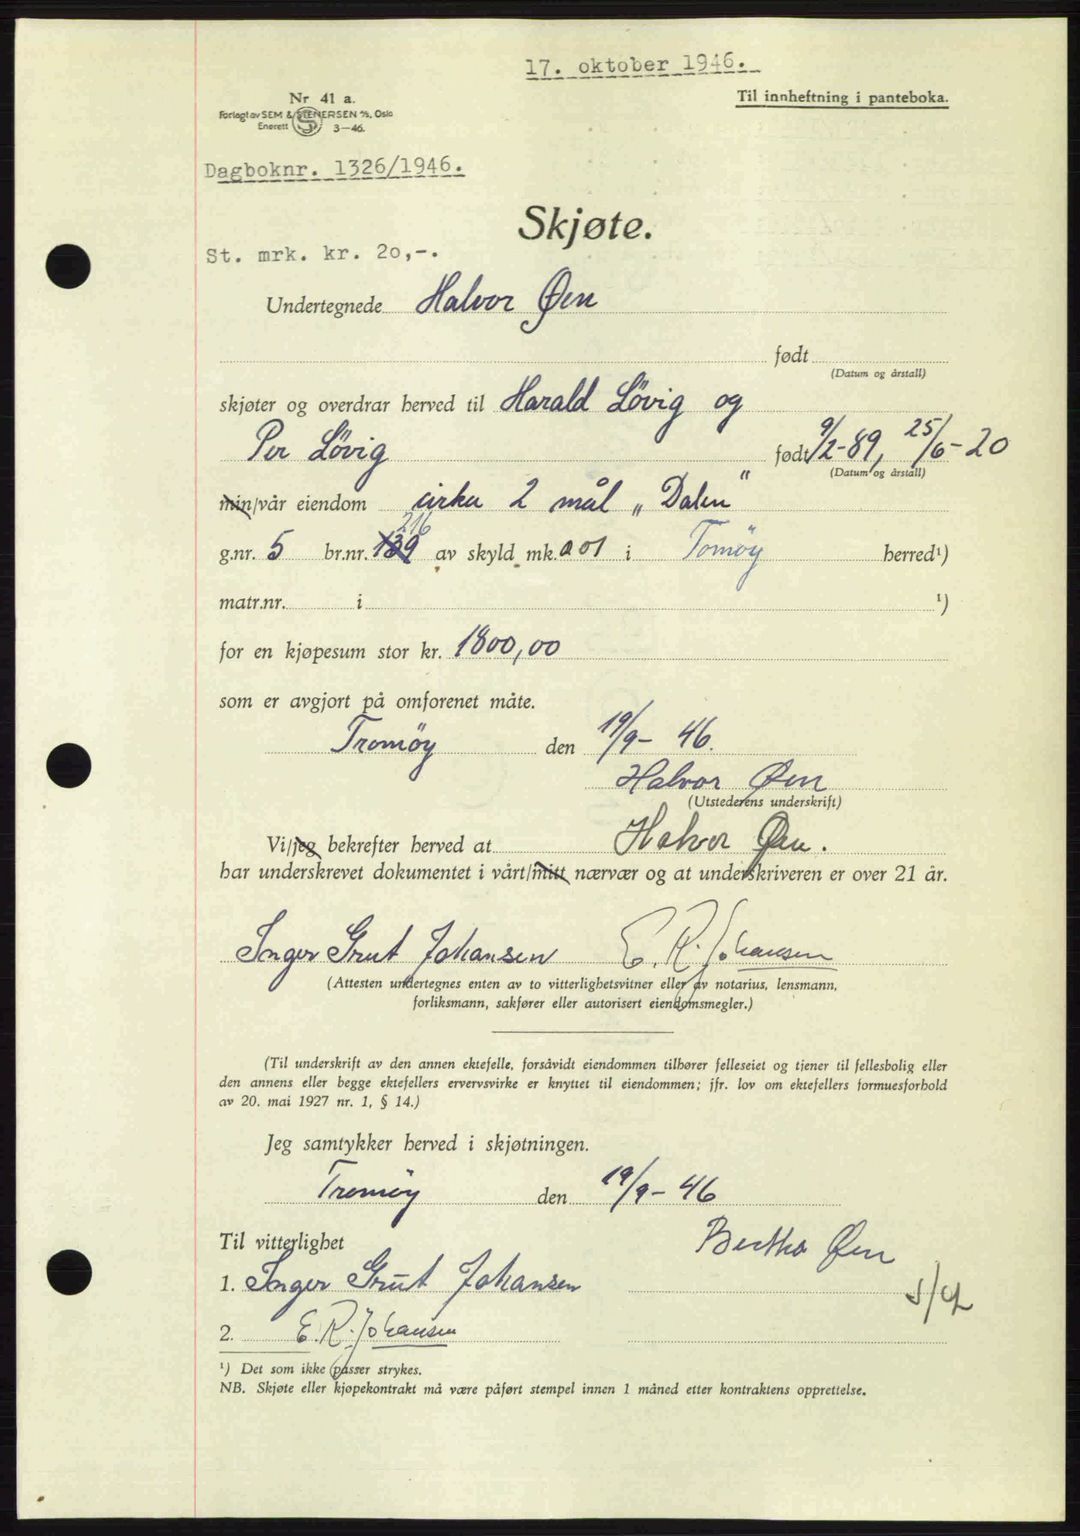 17. oktober 1946.
Til innheftning i panteboka.
Nr 41 a.
Forlagt av SEM & STENERSEN A/S, Oslo
Enerett 3-46.
Dagboknr. 1326/1946.
Skjøte.
St. mrk. kr. 20,-.
Undertegnede Halvor Øen
født
(Datum og årstall)
skjøter og overdrar herved til Harald Lövig og
Per Lövig født 9/2-89, 25/6-20
(Datum og årstall)
min/vår eiendom cirka 2 mål „Dalen"
216
g.nr. 5 br.nr. 139 av skyld mk. 0 01 i Tomöy herred¹)
matr.nr. i ¹)
for en kjøpesum stor kr. 1800,00
som er avgjort på omforenet måte.
Tromöy den 19/9- 46.
Halvor Øen
(Utstederens underskrift)
Vi/jeg bekrefter herved at Halvor Øen.
har underskrevet dokumentet i vårt/mitt nærvær og at underskriveren er over 21 år.
Inger Grut Johansen E. R. Johansen
(Attesten undertegnes enten av to vitterlighetsvitner eller av notarius, lensmann,
forliksmann, sakfører eller autorisert eiendomsmegler.)
(Til underskrift av den annen ektefelle, forsåvidt eiendommen tilhører felleseiet og tjener til fellesbolig eller
den annens eller begge ektefellers ervervsvirke er knyttet til eiendommen; jfr. lov om ektefellers formuesforhold
av 20. mai 1927 nr. 1, § 14.)
Jeg samtykker herved i skjøtningen.
Tromöy den 19/9- 46
Bertha Øen
Til vitterlighet
1. Inger Grut Johansen
2. E. R. Johansen
¹) Det som ikke passer strykes.
NB. Skjøte eller kjøpekontrakt må være påført stempel innen 1 måned etter kontraktens opprettelse.